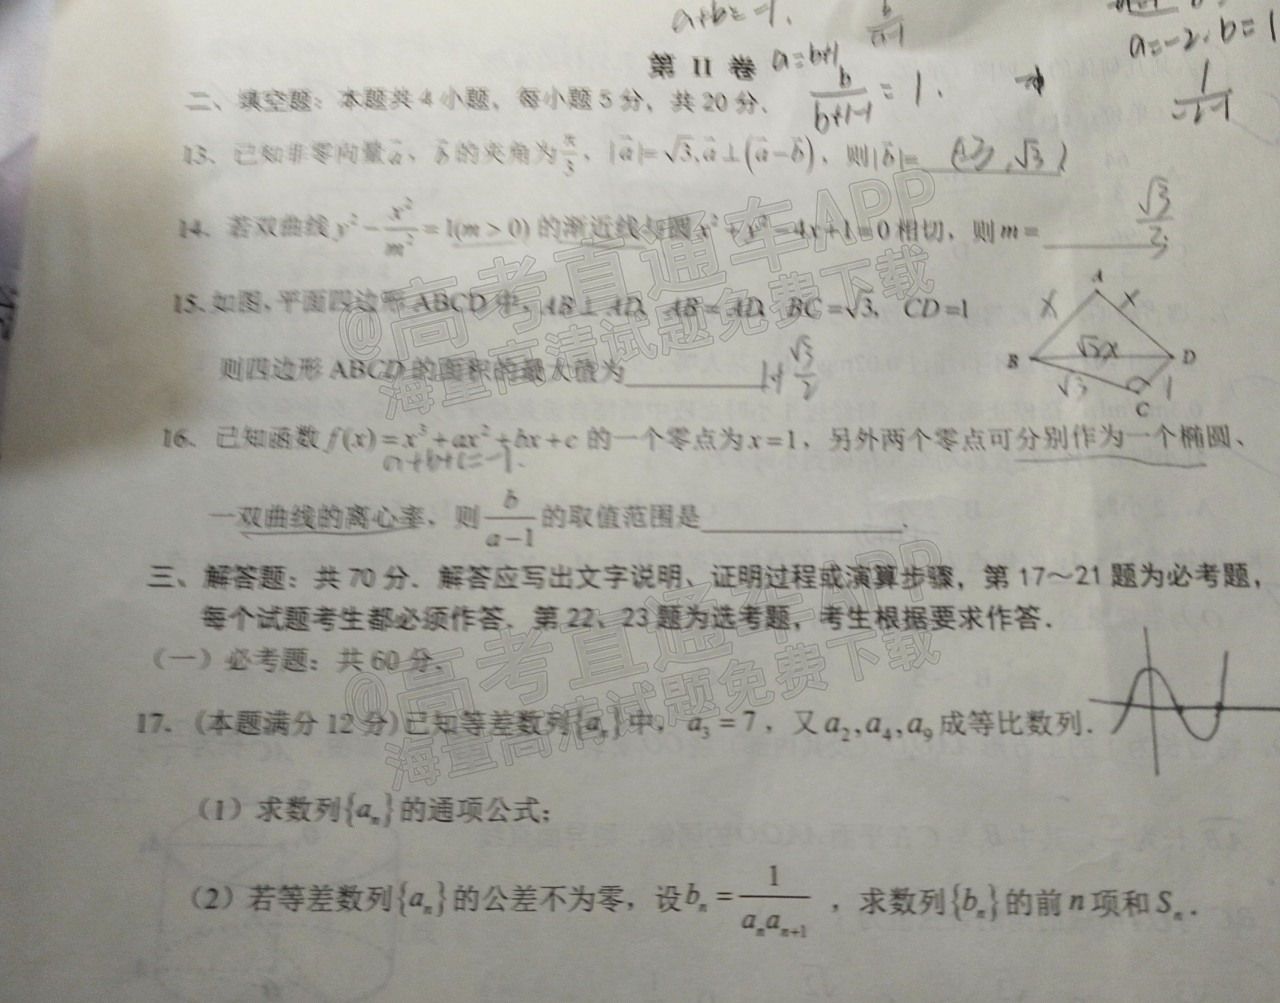 a+b=-1.
b/a-1
a=-2. b=1
第 II 卷 a=b+1
二、填空题：本题共 4 小题，每小题 5 分，共 20 分． b/b+1-1 = 1. 1/-2-1
13、已知非零向量a⃗、b⃗的夹角为π/3，|a⃗|=√3,a⃗⊥(a⃗-b⃗)，则|b⃗|=________
14、若双曲线y²-x²/m²=1(m>0)的渐近线与圆x²+y²-4x+1=0相切，则m=________ √3/3
15、如图，平面四边形ABCD中，AB⊥AD，AB=AD，BC=√3，CD=1
则四边形ABCD的面积的最大值为________ 1+√3/2
A
x x
B √3x D
√3 1
C
16、已知函数f(x)=x³+ax²+bx+c的一个零点为x=1，另外两个零点可分别作为一个椭圆、
a+b+c=-1.
一双曲线的离心率，则b/a-1的取值范围是________．
三、解答题：共 70 分．解答应写出文字说明、证明过程或演算步骤，第 17～21 题为必考题，
每个试题考生都必须作答．第 22、23 题为选考题，考生根据要求作答．
（一）必考题：共 60 分．
17．(本题满分 12 分)已知等差数列{aₙ}中，a₃=7，又a₂,a₄,a₉成等比数列．
（1）求数列{aₙ}的通项公式；
（2）若等差数列{aₙ}的公差不为零，设bₙ=1/aₙaₙ₊₁，求数列{bₙ}的前n项和Sₙ．
@高考直通车APP
海量高清试题免费下载
@高考直通车APP
海量高清试题免费下载